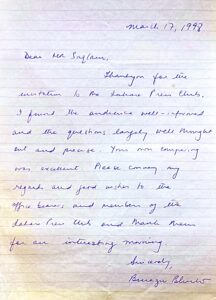 March 17, 1998
Dear
Thankyou for the
invitation to the Lahore Press Club.
I found the audience well-informed
and the questions largely well thought
out and precise. Your own compering
was excellent. Please convey my
regard and good wishes to the
office bearers and members of the
Lahore Press Club and thank them
for an interesting morning.
Sincerely,
Benazir Bhutto